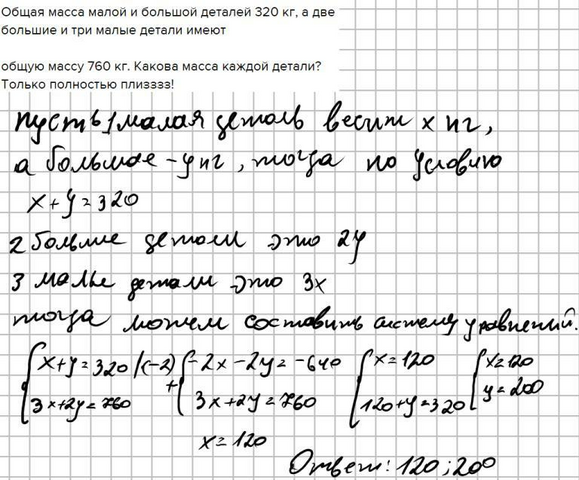 Общая масса малой и большой деталей 320 кг, а две
большие и три малые детали имеют
общую массу 760 кг. Какова масса каждой детали?
Только полностью плизззз!
пусть 1 малая деталь весит x кг,
а большая - y кг, тогда по условию
x+y=320
2 больше детали это 2y
3 малые детали это 3x
тогда можем составить систему уравнений.
{x+y=320 |(-2) + {-2x-2y=-640 {x=120 {x=120
3x+2y=760 3x+2y=760 120+y=320 y=200
x=120
Ответ: 120; 200